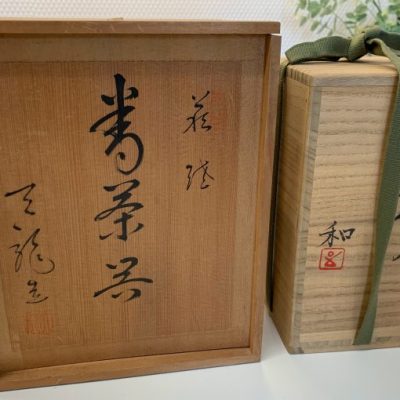 萩焼
番茶器
天龍造
和